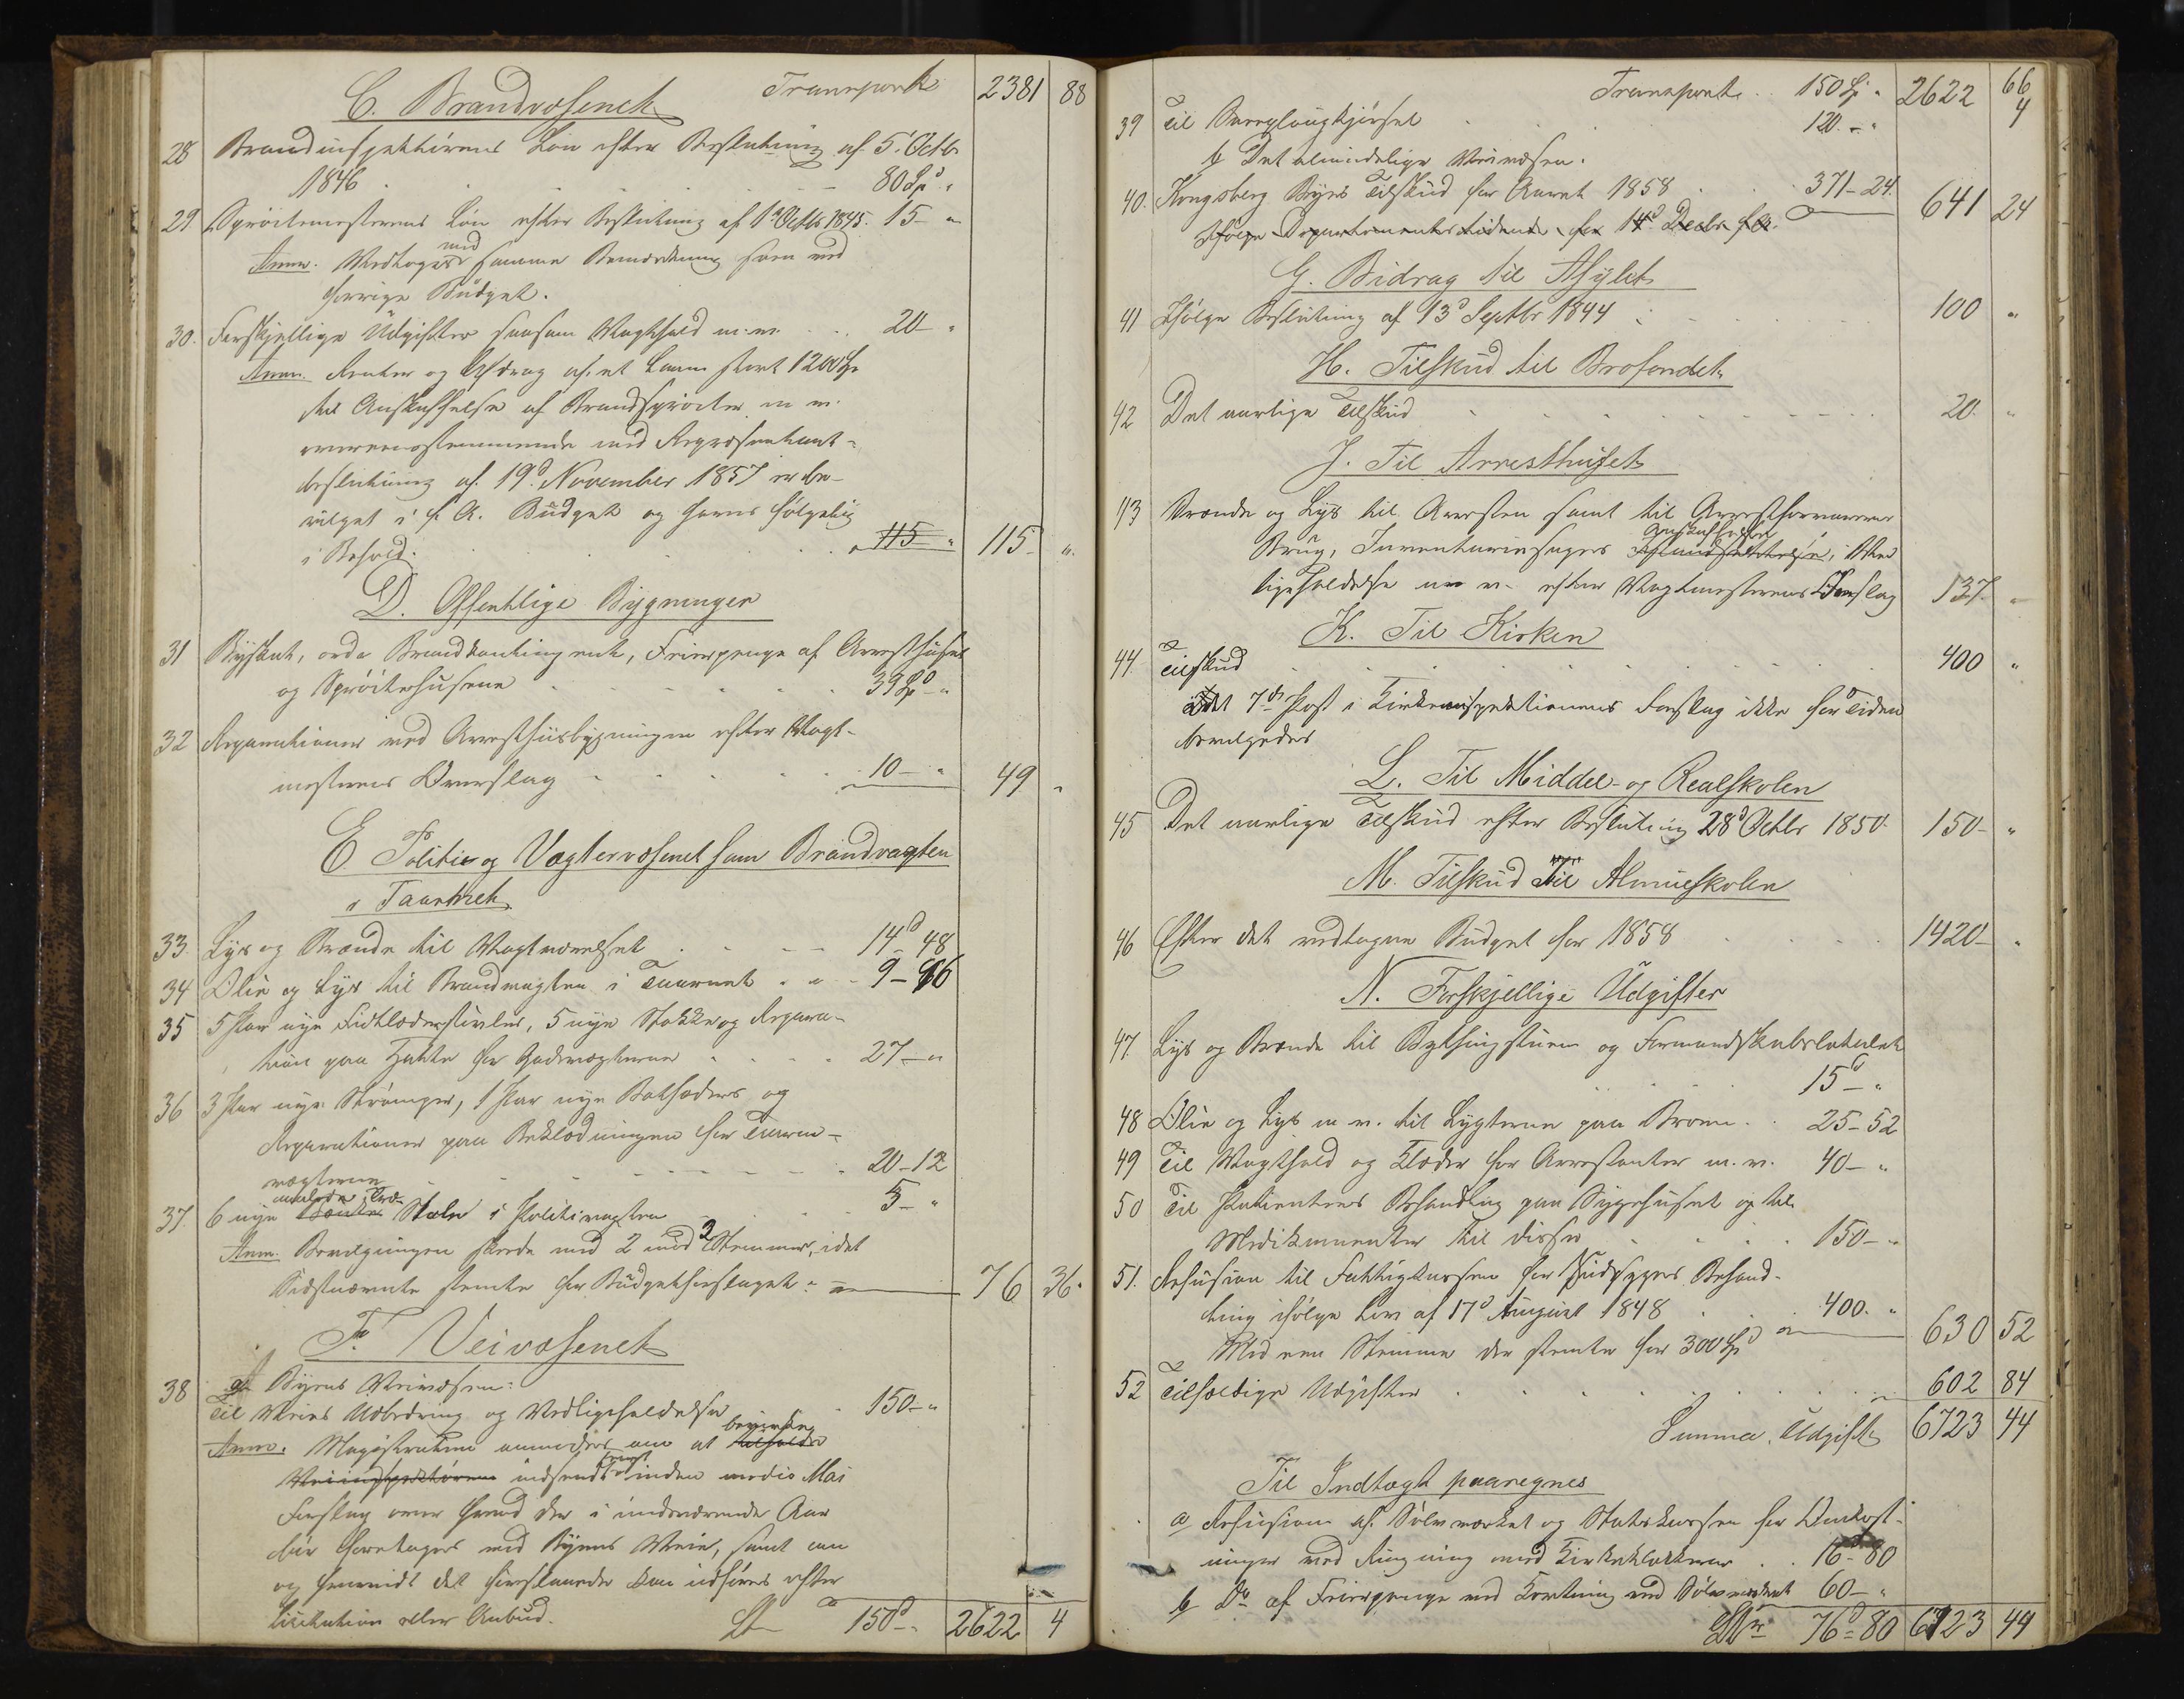 C. Brandvæsenet Transport 2381 88
28 Brandinspektörens Lön efter Beslutning af 5. Octbr
1846 80 Sp "
29 Spröitemesterens Lön efter Beslutning af 1 Octbr 1845. 15 - "
Anm. Vedtoges med samme Bemærkning som ved
forrige Budget.
30. Forskjellige Udgifter saasom Vagthold m.m. 20 "
Anm. Renter og Afdrag af et Laan stort 1200 Sp
til Anskaffelse af Brandspröiter m m.
overensstemmende med Repræsentant-
beslutning af 19d November 1857 er be-
vilget i f. A. Budget og haves følgelig
i Behold. 115 " 115 - "
D. Offentlige Bygninger
31 Byskat, ord. Brandkontingent, Frierpenge af Arresthuset
og Spröitehusene 39 Sp "
32 Reparationer ved Arresthusbygningen efter Vagt-
mesterens Overslag 10 - " 49 "
E Politie og Vægtervæsenet samt Brandvagten
i Taarnet
33. Lys og Brænde til Vagtværelset 14d 48
34 Olie og Lys til Brandvagten i Taarnet 9 - 96
35 5 Par nye Fidtlæderstövler, 5 nye Stokke og Repara-
tion paa Hatte for Gadevægterne 27 - "
36 3 Par nye Strömper, 1 Par nye Botforer og
Reparationer paa Beklædningen for Taarn-
vægterne 20 - 12
37. 6 nye malede Træ- Stole i Politivagten 5 - "
Anm. Bevilgningen skede med 2 mod 2 Stemmer, idet
Sidstnævnte stemte for Budgetforslaget. 76 36
F. Veivæsenet
38 a Byens Veivæsen:
Til Veies Udbedring og Vedligeholdelse 150 - "
Anm. Magistraten anmodes om at tilholde bevirke
Veiinspektören indsendt inden medio Mai
Forslag over hvad der i indeværende Aar
bör foretages med Byens Veie, samt om
og hvorvidt det foreslaaede kan udföres efter
Licitation eller Anbud. Lt 150d - " 2622 4
Transport 150 Sp " 2622 66 4
39 Til Sneplougkjörsel 120 - "
b Det almindelige Veivæsen.
40. Kongsberg Byes Tilskud for Aaret 1858 371 - 24. 641 24
Ifølge Departementstidende for 14d Decbr f. A.
G. Bidrag til Asylet
41 Ifølge Beslutning af 13d Septbr 1844 100 "
H. Tilskud til Brofondet
42 Det aarlige Tilskud 20. "
J. Til Arresthuset
43 Brænde og Lys til Arresten samt til Arrestforvarerens
Brug, Inventariesagers Anskaffelse, Ved-
ligeholdelse m m. efter Vagtmesterens Overslag 137. "
K. Til Kirken
44. Tilskud 400 "
idet 7de Post i Kirkeinspektionens Forslag ikke for Tiden
bevilgedes
L. Til Middel- og Realskolen
45 Det aarlige Tilskud efter Beslutning 28d Octbr 1850. 150 - "
M. Tilskud Til Almueskolen
46 Efter det vedtagne Budget for 1858 1420 - "
N. Forskjellige Udgifter
47. Lys og Brænde til Bythingstuen og Formandskabslokalet
15d - "
48 Olie og Lys m m. til Lygterne paa Broen. 25 - 52
49 Til Vagthold og Klæder for Arrestanter m. m. 40 - "
50 Til Patienters Behandling paa Sygehuset og til
Medikamenter til disse 150 - "
51. Refusion til Fattigkassen for Sindssyges Behand-
ling ifølge Lov af 17d August 1848 400. "
Med een Stemme der stemte for 300 Sp 630 52
52 Tilfældige Udgifter 602 84
Summa Udgift 6723 44
Til Indtægt paaregnes
a Refusion af Sölvværket og Statskassen for Omkost-
ninger ved Ringning med Kirkeklokkerne 16d - 80
b Do af Frierpenge ved Kortning ved Sölvværket 60 - "
Ltr 76d = 80 6723 44